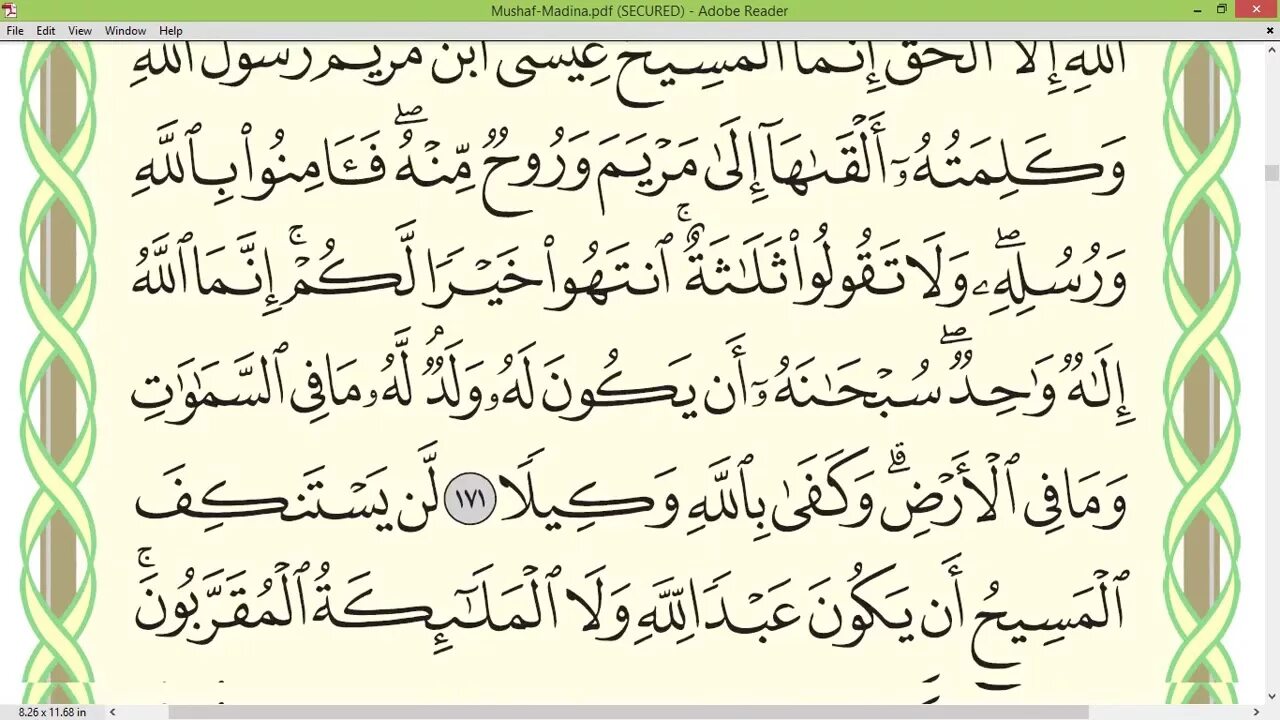 Mushaf-Madina.pdf (SECURED) - Adobe Reader
File Edit View Window Help
ٱللَّهِ إِلَّا ٱلْحَقَّ إِنَّمَا ٱلْمَسِيحُ عِيسَى ٱبْنُ مَرْيَمَ رَسُولُ ٱللَّهِ
وَكَلِمَتُهُۥٓ أَلْقَىٰهَآ إِلَىٰ مَرْيَمَ وَرُوحٌ مِّنْهُ ۖ فَـَٔامِنُوا۟ بِٱللَّهِ
وَرُسُلِهِۦ ۖ وَلَا تَقُولُوا۟ ثَلَـٰثَةٌ ۚ ٱنتَهُوا۟ خَيْرًا لَّكُمْ ۚ إِنَّمَا ٱللَّهُ
إِلَـٰهٌ وَٰحِدٌ ۖ سُبْحَـٰنَهُۥٓ أَن يَكُونَ لَهُۥ وَلَدٌ ۘ لَّهُۥ مَا فِى ٱلسَّمَـٰوَٰتِ
وَمَا فِى ٱلْأَرْضِ ۗ وَكَفَىٰ بِٱللَّهِ وَكِيلًا ١٧١ لَّن يَسْتَنكِفَ
ٱلْمَسِيحُ أَن يَكُونَ عَبْدًا لِّلَّهِ وَلَا ٱلْمَلَـٰٓئِكَةُ ٱلْمُقَرَّبُونَ ۚ
8.26 x 11.68 in